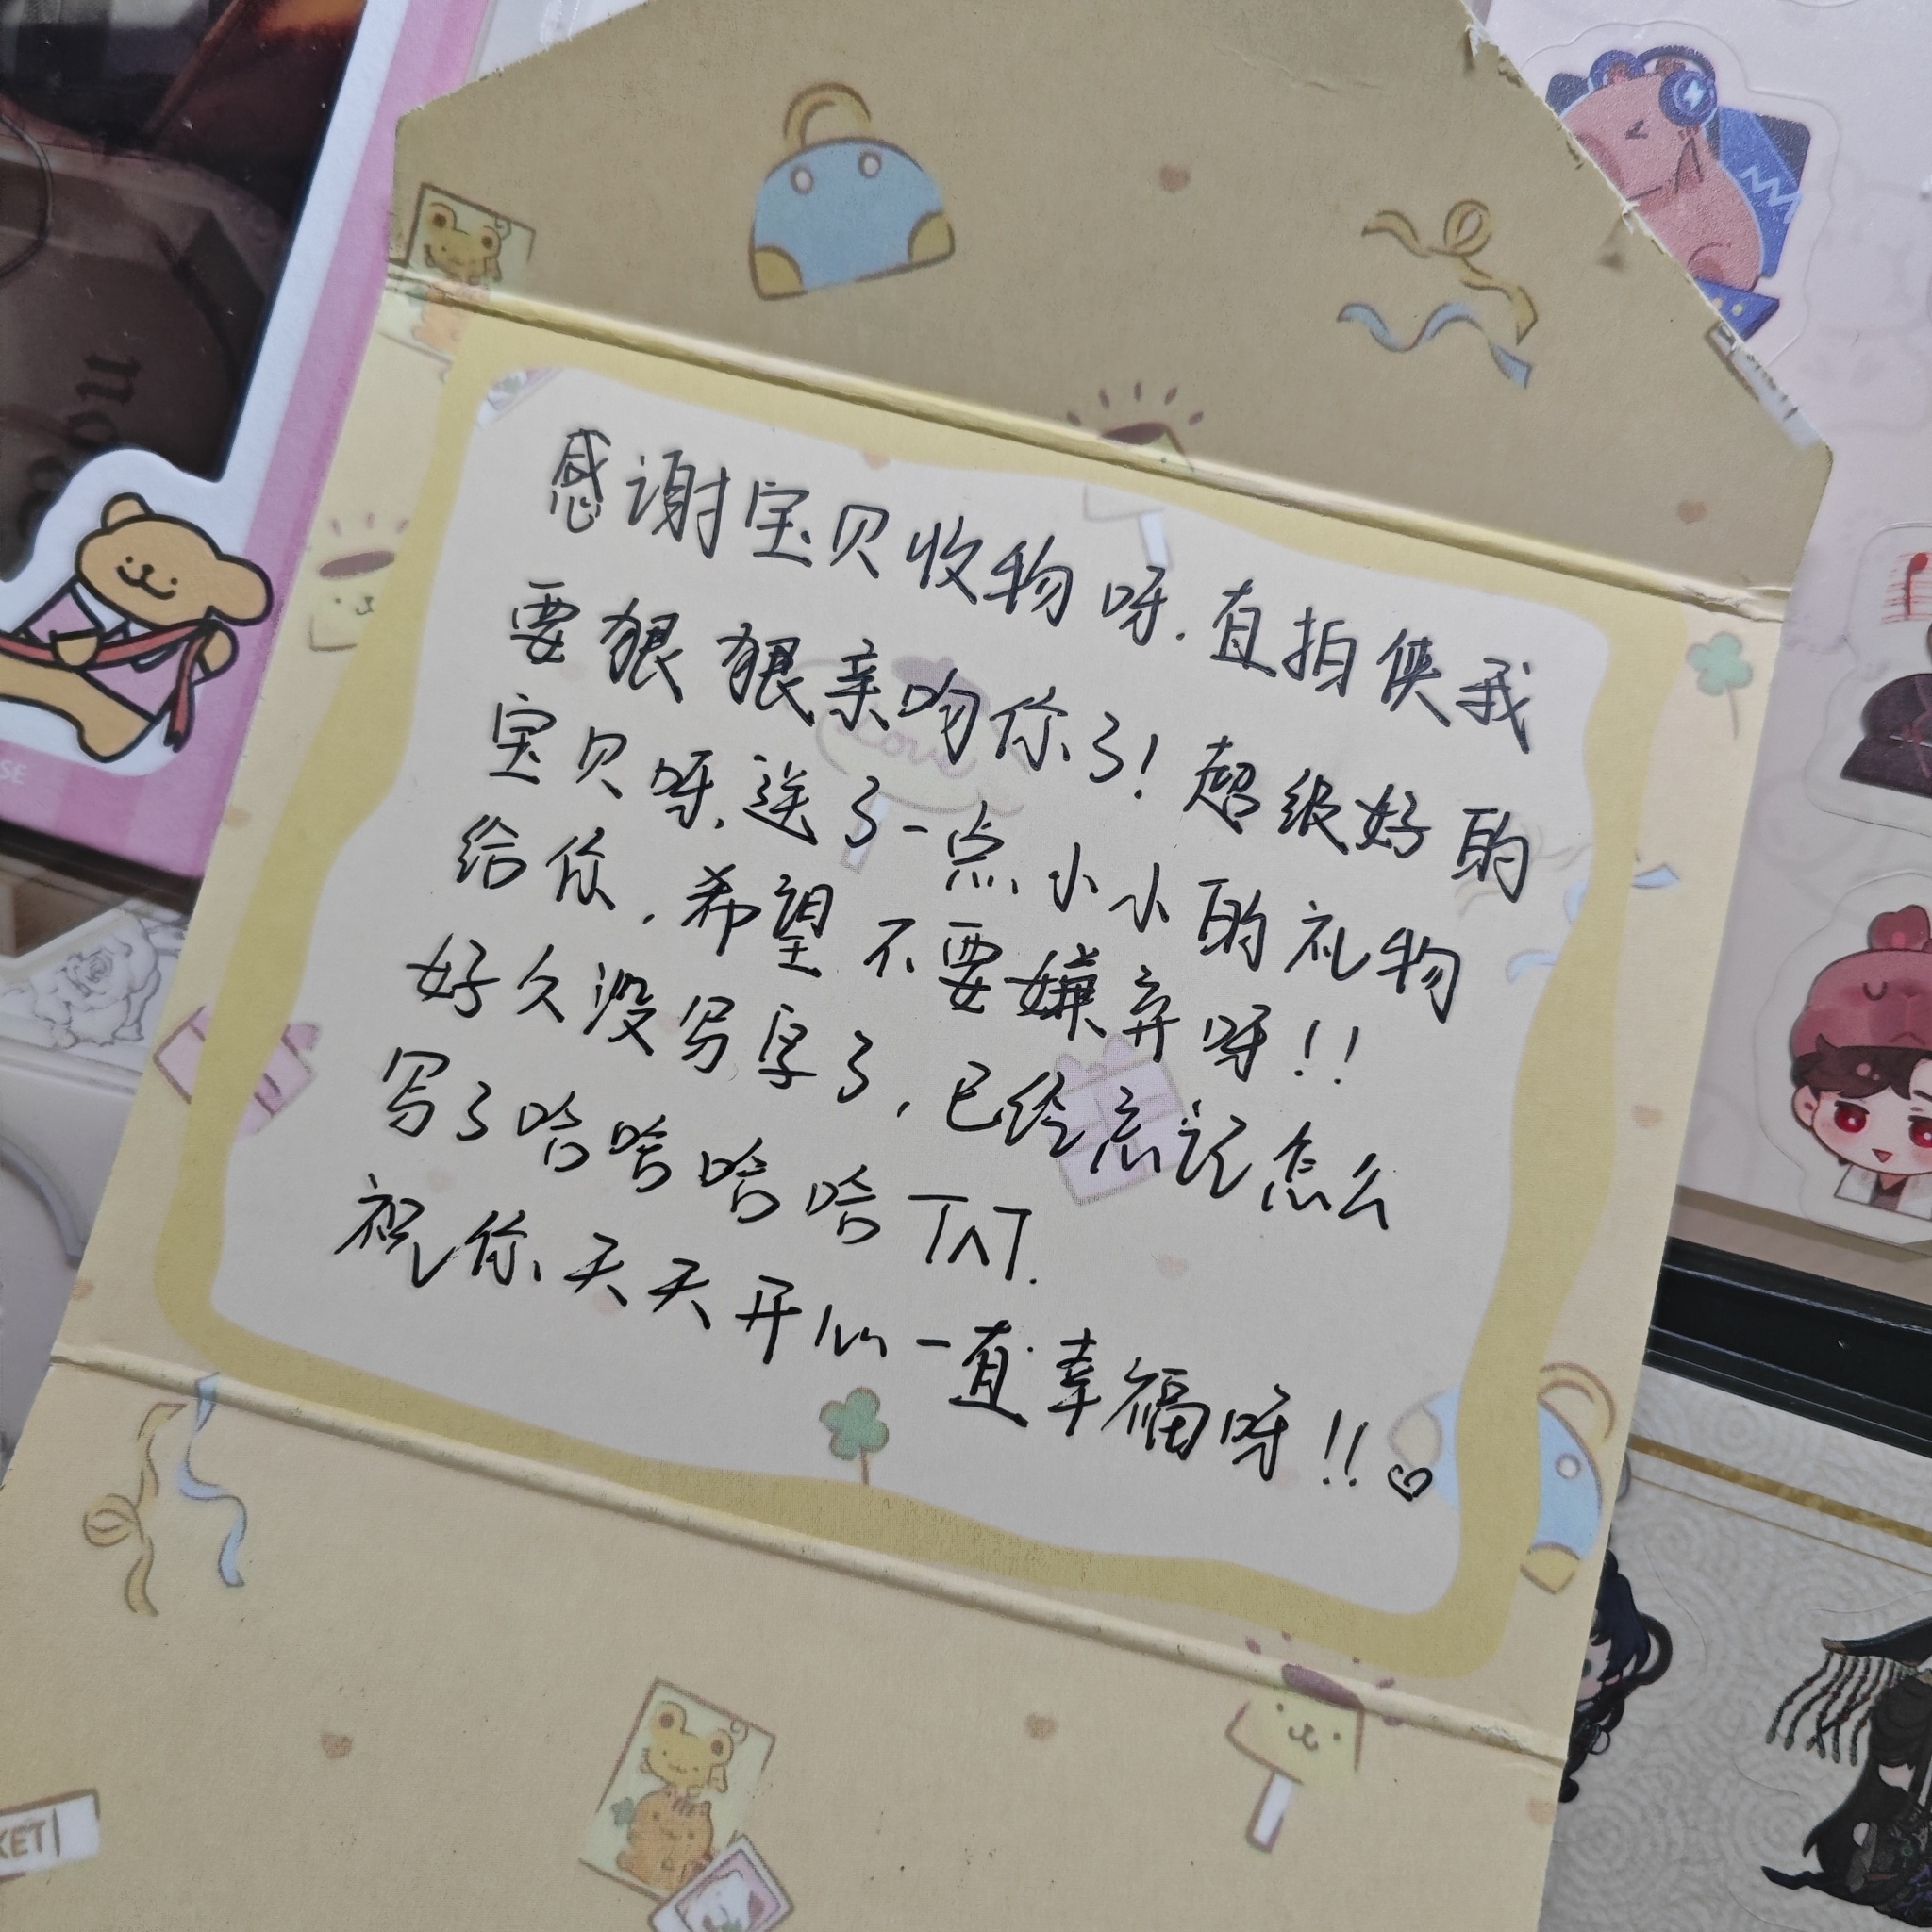 感谢宝贝收物呀.直拍侠我
要狠狠亲吻你了!超级好的
宝贝呀.送了一点小小的礼物
给你,希望不要嫌弃呀!!
好久没写字了,已经忘记怎么
写了哈哈哈哈TAT.
祝你天天开心一直幸福呀!!♡
Love
SE
KET
you